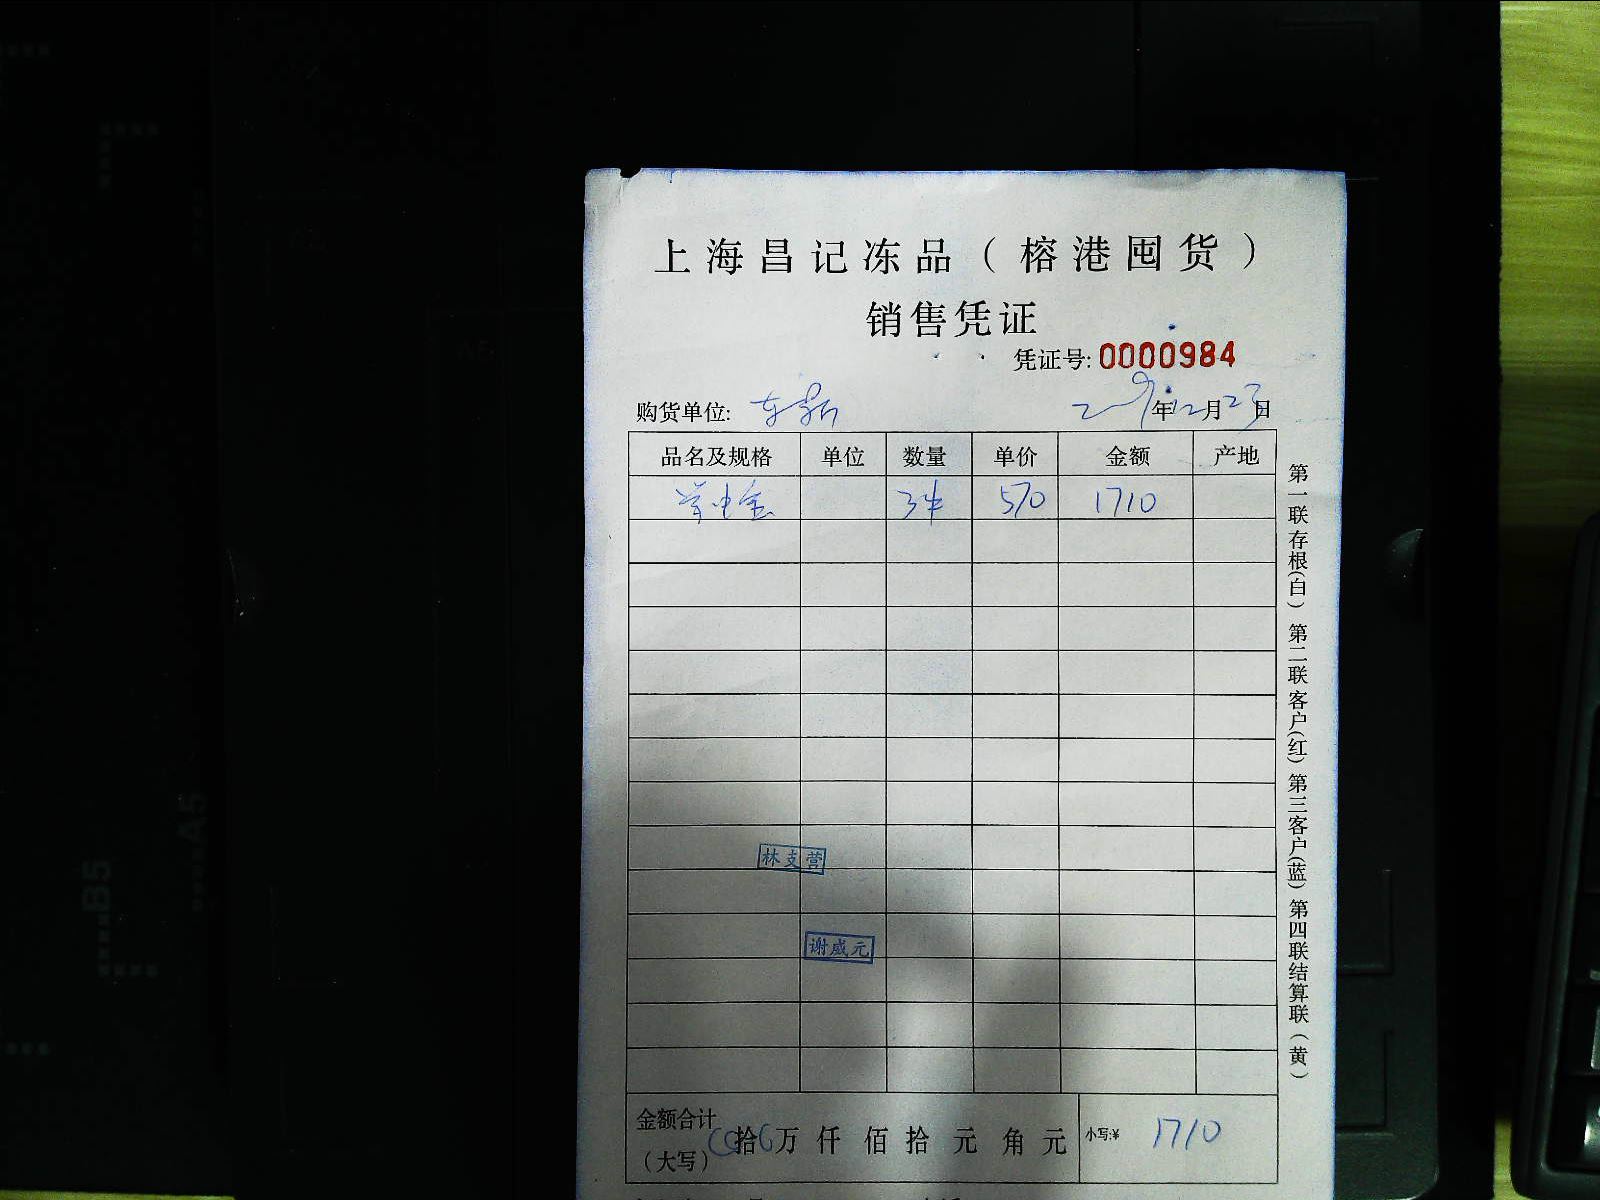 上海昌记冻品（榕港囤货）
销售凭证
凭证号: 0000984
购货单位:
2019年12月23日
品名及规格 单位 数量 单价 金额 产地
3件 570 1710
林支营
谢威元
金额合计
（大写）
拾 万 仟 佰 拾 元 角 元
小写:¥ 1710
第一联存根(白) 第二联客户(红) 第三客户(蓝) 第四联结算联(黄)
A6
A5
B5